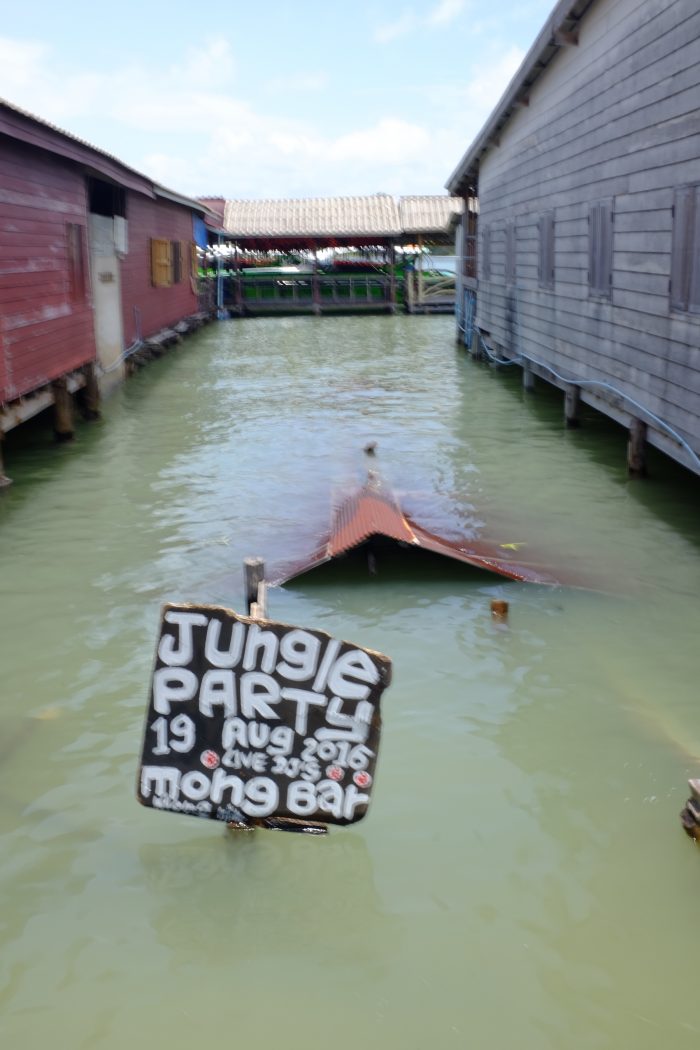 Jungle
PARTY
19 Aug 2016
LIVE DJ'S
mong Bar